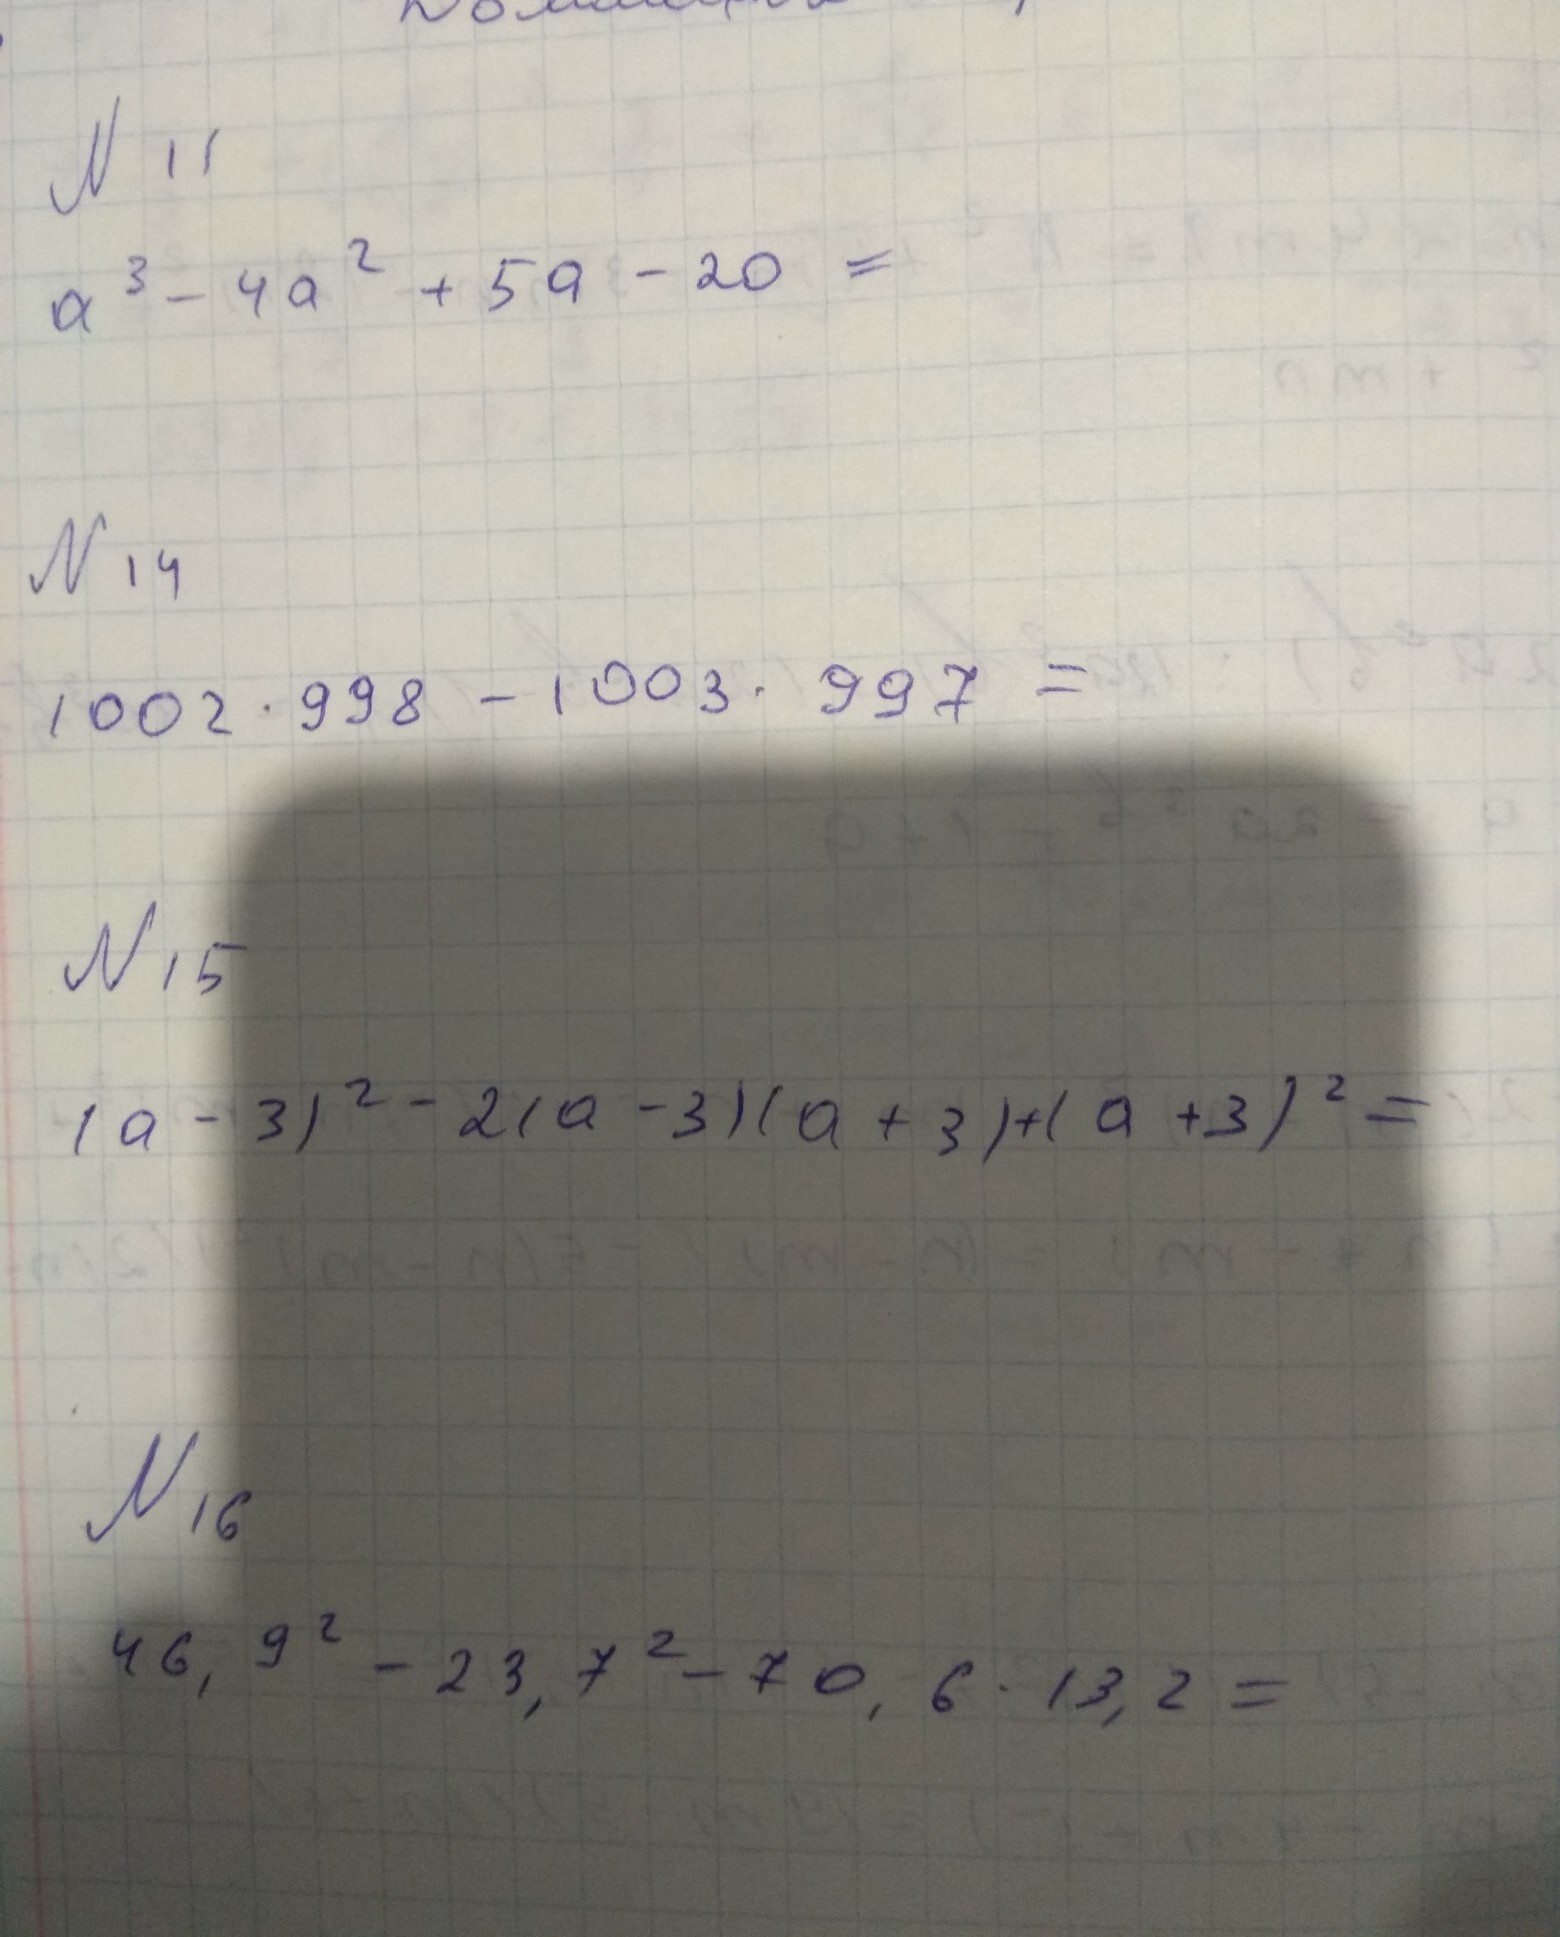 N 11
a³ - 4a² + 5a - 20 =
N 14
1002 · 998 - 1003 · 997 =
N 15
(a - 3)² - 2(a - 3)(a + 3)+(a + 3)² =
N 16
46,9² - 23,7² - 70,6 · 13,2 =